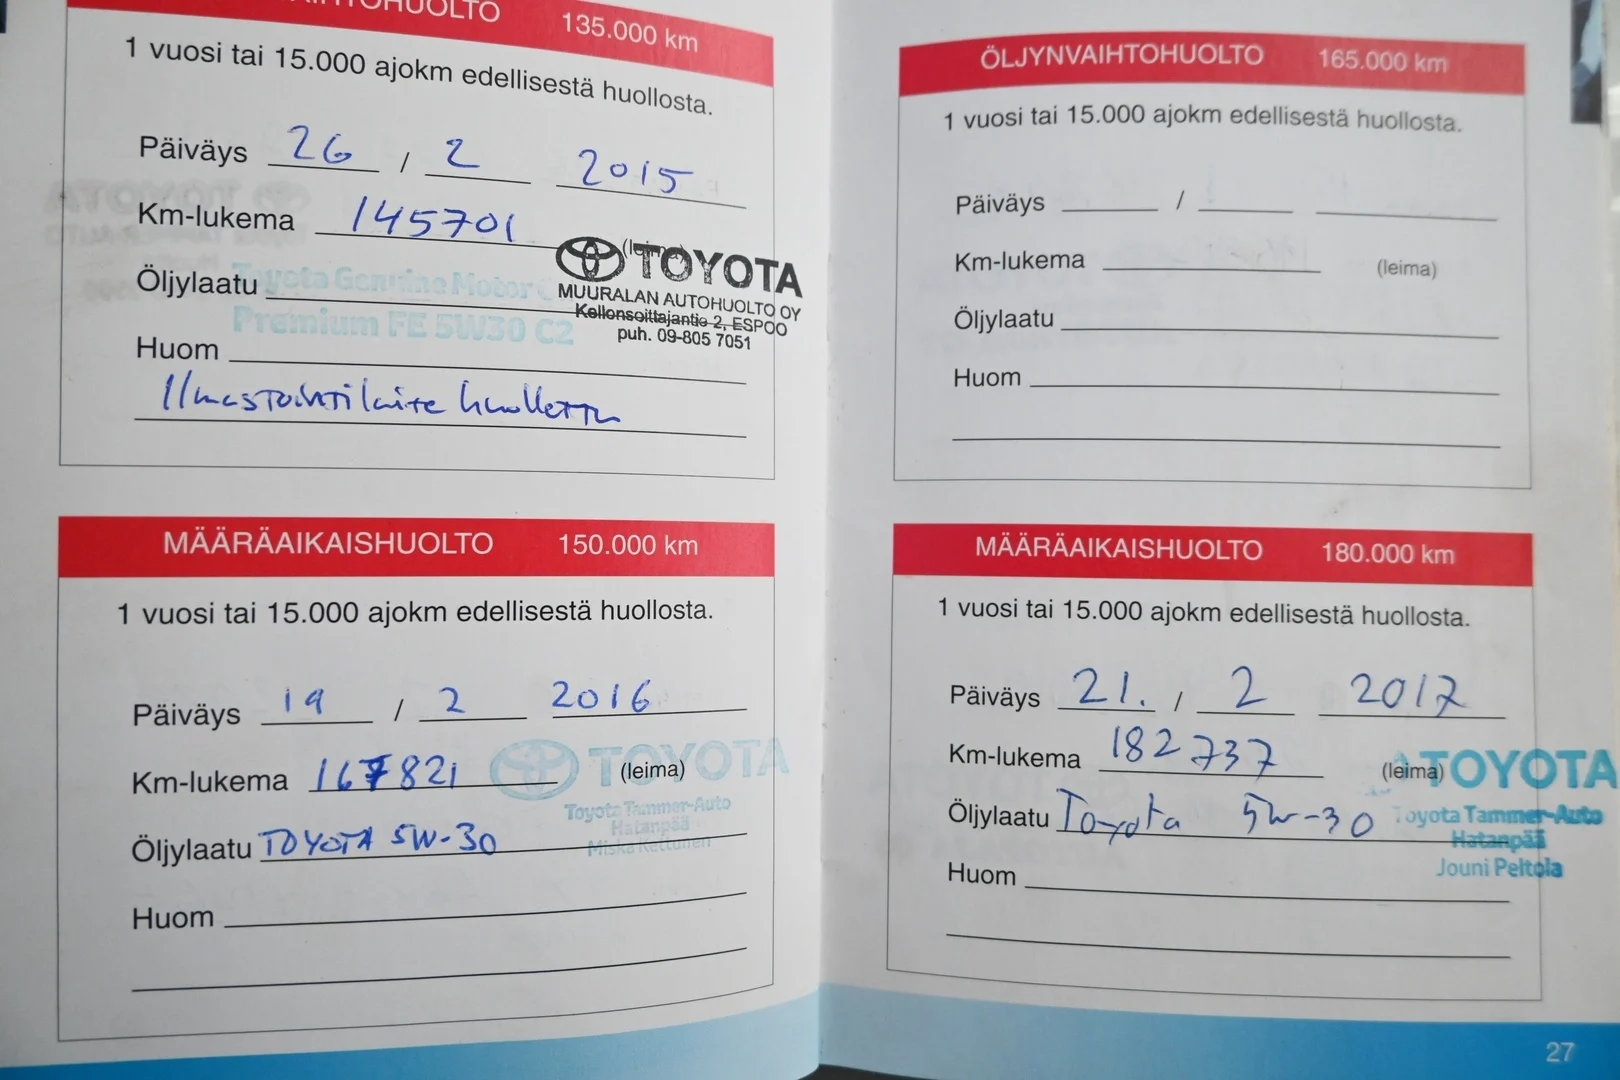 135.000 km
1 vuosi tai 15.000 ajokm edellisestä huollosta.
Päiväys 26 / 2 2015
Km-lukema 145701
(leima)
TOYOTA
MUURALAN AUTOHUOLTO OY
Kellonsoittajantie 2, ESPOO
puh. 09-805 7051
Öljylaatu Toyota Genuine Motor
Premium FE 5W30 C2
Huom
Ilmastointilaite huollettu
MÄÄRÄAIKAISHUOLTO 150.000 km
1 vuosi tai 15.000 ajokm edellisestä huollosta.
Päiväys 19 / 2 2016
Km-lukema 167821 (leima)
TOYOTA
Toyota Tammer-Auto
Hatanpää
Miska Kettunen
Öljylaatu TOYOTA 5W-30
Huom
ÖLJYNVAIHTOHUOLTO 165.000 km
1 vuosi tai 15.000 ajokm edellisestä huollosta.
Päiväys /
Km-lukema (leima)
Öljylaatu
Huom
MÄÄRÄAIKAISHUOLTO 180.000 km
1 vuosi tai 15.000 ajokm edellisestä huollosta.
Päiväys 21. / 2 2017
Km-lukema 182737 (leima)
TOYOTA
Toyota Tammer-Auto
Hatanpää
Jouni Peltola
Öljylaatu Toyota 5W-30
Huom
27